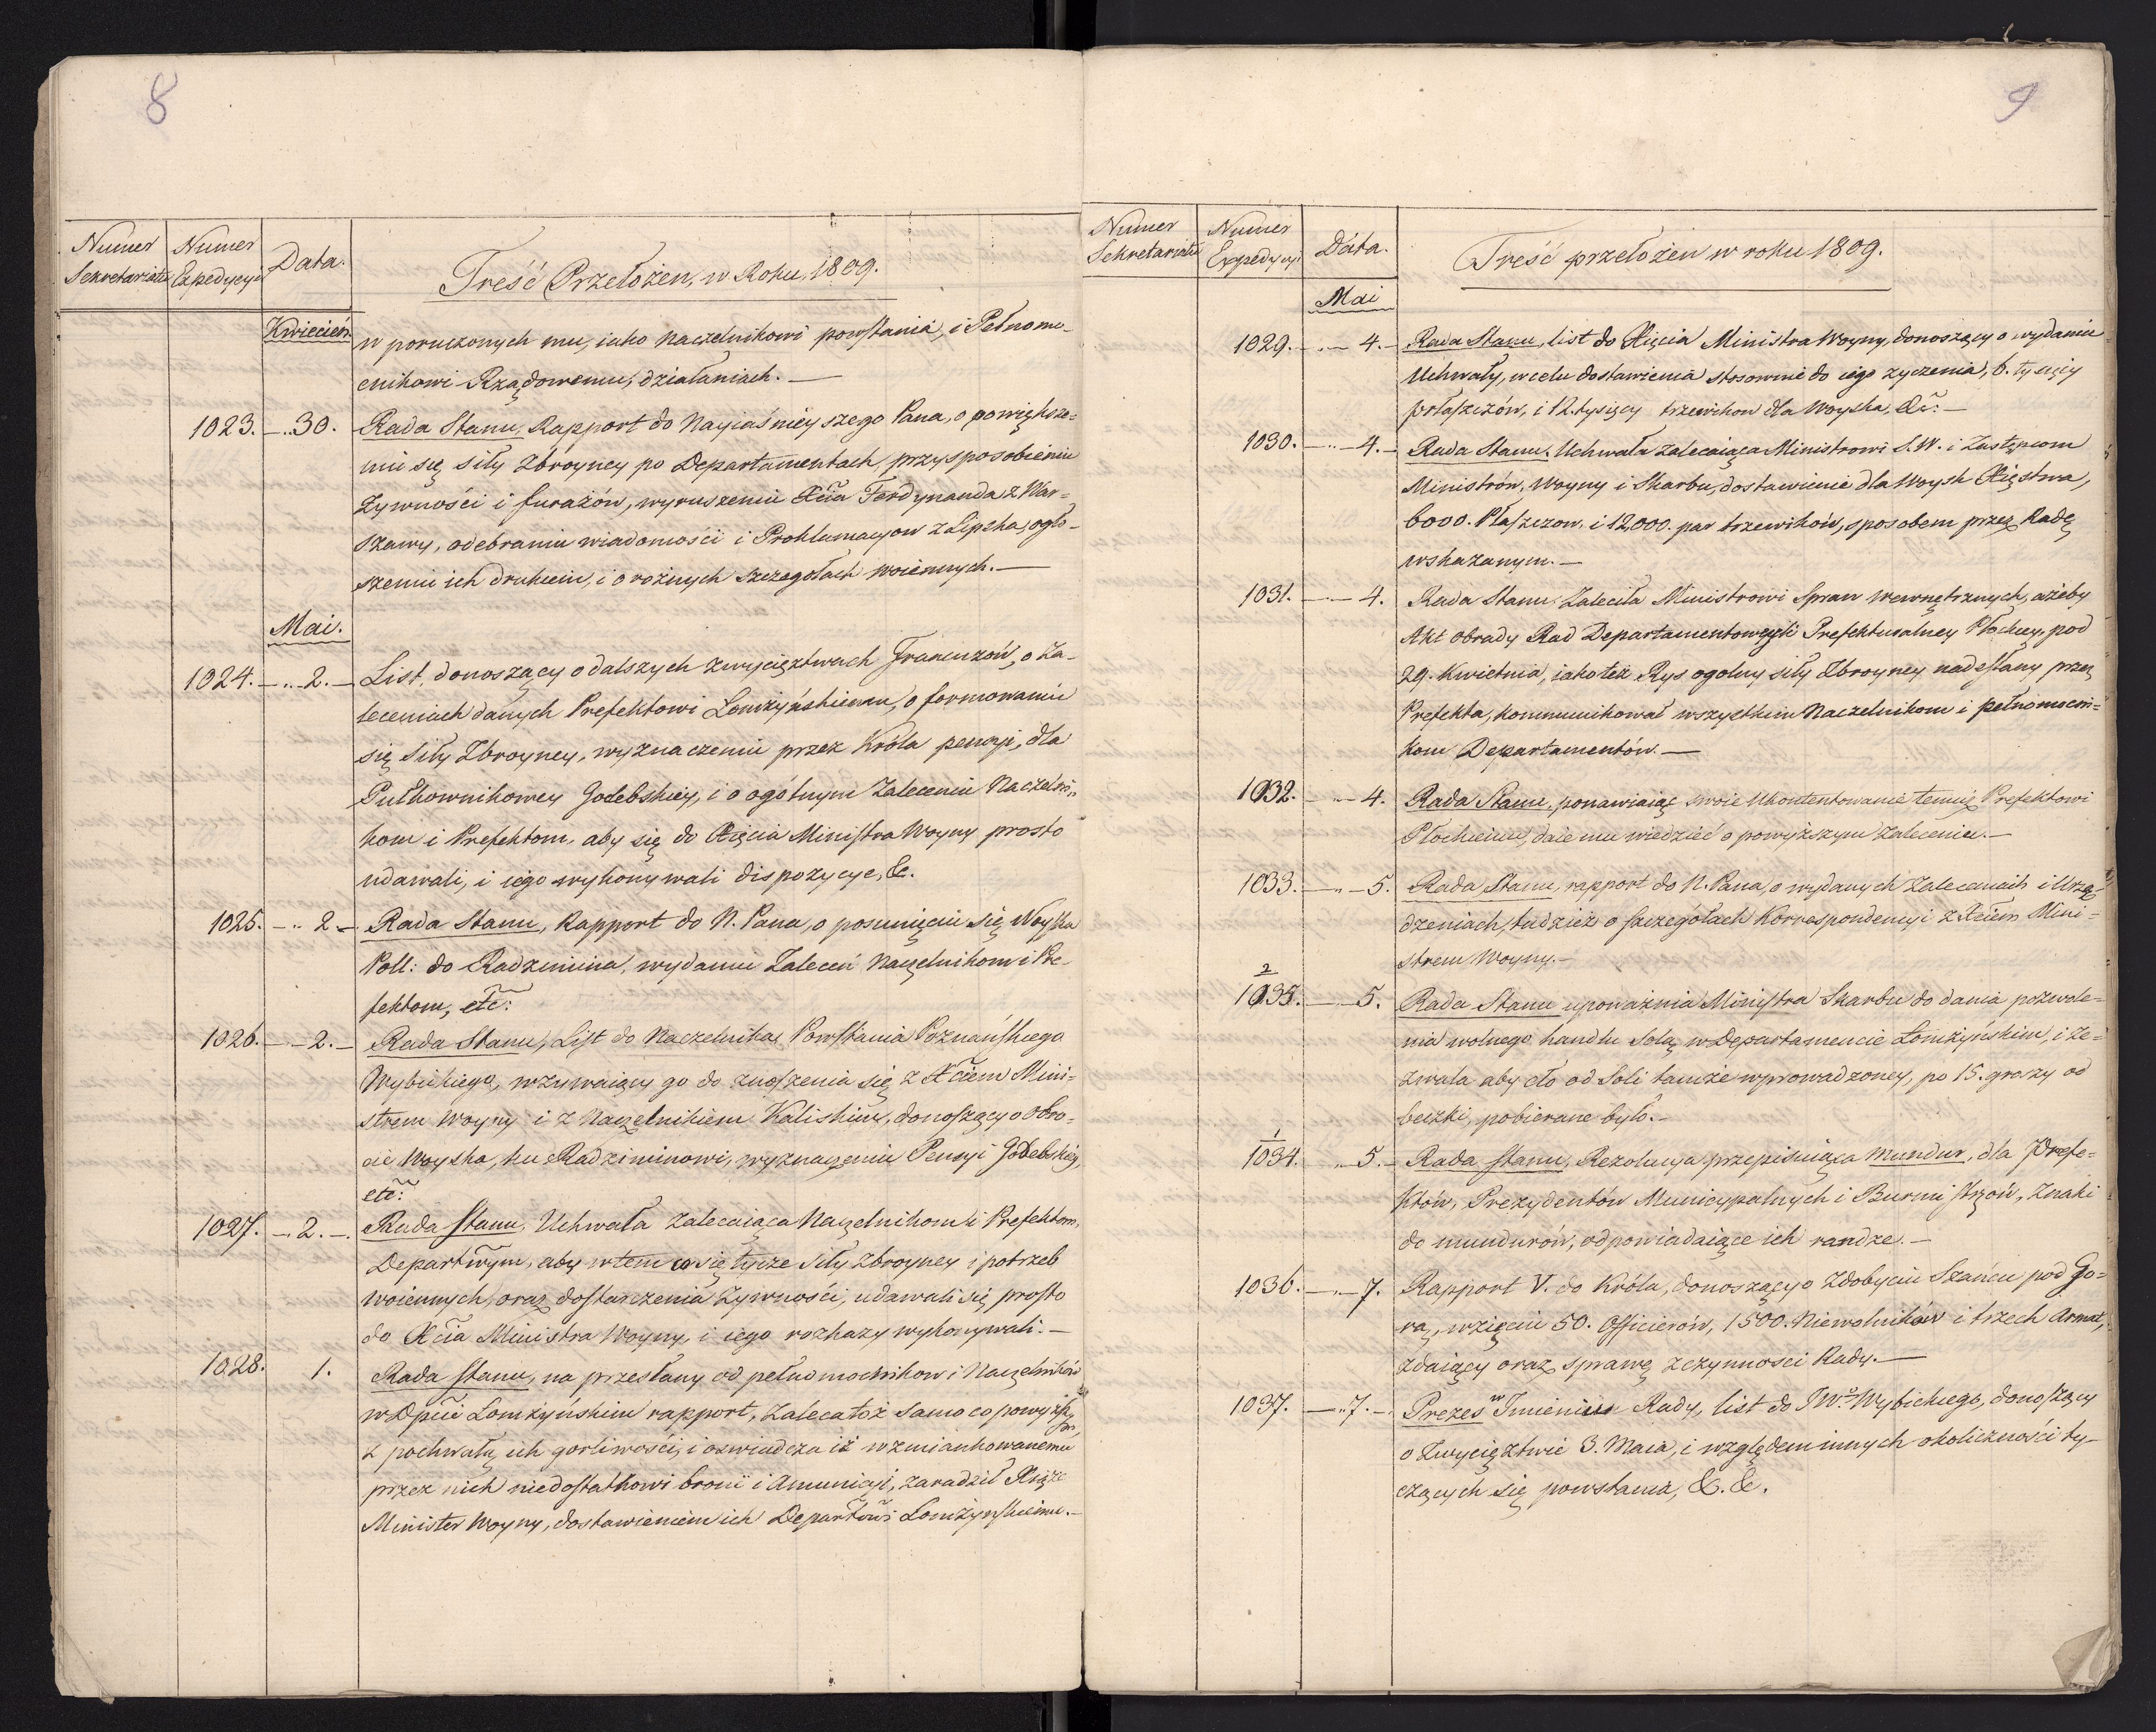 8
Numer Sekretariatu
Numer Expedycyi
Data.
Treść Przełożen, w Roku, 1809.
Kwiecień
w poruczonych mu, iako Naczelnikowi powstania, i Pełnomo-
cnikowi Rządowemu, działaniach. —
1023. — .. 30. Rada Stanu, Rapport do Nayiaśnieyszego Pana, o powiększe-
niu się siły Zbroyney po Departamentach, przysposobieniu
Żywności i furażów, wyruszeniu Xcia Ferdynanda z War-
szawy, odebraniu wiadomości i Proklamacyow z Lipska, ogło-
szeniu ich drukiem, i o rożnych szczegołach woiennych. —
Mai.
1024. — .. 2. — List, donoszący o dalszych zwycięztwach Francuzów, o Za-
leceniach danych Prefektowi Łomżyńskiemu, o formowaniu
się Siły Zbroyney, wyznaczeniu przez Króla pensyi, dla
Pułkownikowey Godebskiey, i o ogólnym Zaleceniu Naczelni-
kom i Prefektom, aby się do Xięcia Ministra Woyny prosto
udawali, i iego wykonywali dispozycye, &c.
1025. — .. 2. — Rada Stanu, Rapport do N. Pana, o posunięciu się Woyska
Poll: do Radzimina, wydaniu Zaleceń Naczelnikom i Pre-
fektom, etc:
1026. — — 2. — Rada Stanu, List do Naczelnika Powstania Poznańskiego
Wybickiego, wzywaiący go do znoszenia się z Xciem Mini-
strem Woyny i z Naczelnikiem Kaliskim, donoszący o obro-
cie Woyska, ku Radziminowi, wyznaczeniu Pensyi Godebskiey,
etc:
1027. — .. 2. — . Rada Stanu, Uchwała zalecaiąca Naczelnikom i Prefektom,
Departwym, aby w tem co się tycze Siły Zbroyney i potrzeb
woiennych, oraz dostarczenia Żywności, udawali się prosto
do Xcia Ministra Woyny, i iego rozkazy wykonywali. —
1028. 1. Rada Stanu, na przesłany od pełnomocnikow i Naczelników
w Dpcie Łomżyńskim rapport, zaleca toż samo co powyższym,
z pochwałą ich gorliwości, i oswiadcza iż wzmiankowanemu
przez nich niedostatkowi broni i Amunicyi, zaradził Xiąże
Minister Woyny, dostawieniem ich Departowi Łomżyńskiemu. —
9
Numer Sekretariatu
Numer Expedycyi
Data.
Treść przełożen w roku 1809.
Mai
1029. — .. — 4. — Rada Stanu, list do Xięcia Ministra Woyny, donoszący o wydaniu
Uchwały, w celu dostawienia stosownie do iego życzenia, 6. tysięcy
płaszczów, i 12. tysięcy trzewikow dla Woyska, &c. —
1030. — .. — 4. — Rada Stanu. Uchwała zalecaiąca Ministrowi S. W. i Zastępcom
Ministrów, Woyny i Skarbu, dostawienie dla Woysk Xięstwa,
6000. Płaszczow. i 12,000. par trzewików, sposobem przez Radę
wskazanym. —
1031. — .. — 4. Rada Stanu. Zaleciła Ministrowi Spraw wewnętrznych, ażeby
Akt obrady Rad Departamentowey i Prefekturalney Płockiey, pod
29. Kwietnia, iako też Rys ogolny siły Zbroyney nadesłany przez
Prefekta, kommunikował wszystkim Naczelnikom i pełnomocni-
kom Departamentów. —
1032. — .. — 4. Rada Stanu, ponawiaiąc swoie Ukontentowanie temuż Prefektowi
Płockiemu, daie mu wiedzieć o powyższym Zaleceniu. —
1033. — .. — 5. Rada Stanu, rapport do N. Pana, o wydanych Zaleceniach i Urzą-
dzeniach, tudzież o szczegółach Korrespondencyi z Xciem Mini-
strem Woyny. —
2
1035. — .. — 5. Rada Stanu upoważnia Ministra Skarbu do dania pozwole-
nia wolnego handlu Solą w Departamencie Łomżyńskim, i ze-
zwala aby cło od Soli tamże wprowadzoney, po 15. groszy od
beczki, pobierane było. —
1
1034. .. — 5. — Rada Stanu, Rezolucya przepisuiąca Mundur, dla Prefe-
któw, Prezydentów Municypalnych i Burmistrzów, Znaki
do mundurów, odpowiadaiące ich randze. —
1036. — .. — 7. Rapport V. do Króla, donoszący o Zdobyciu Szańcu pod Go-
rą, wzięciu 50. Officierów, 1500. Niewolników i trzech Armat,
zdaiący oraz sprawę z czynnosci Rady. —
1037. — .. 7. — Prezes w Imieniu Rady, list do JWo Wybickiego, donoszący
o Zwycięztwie 3. Maia, i względem innych okoliczności ty-
czących się powstania, &. &.